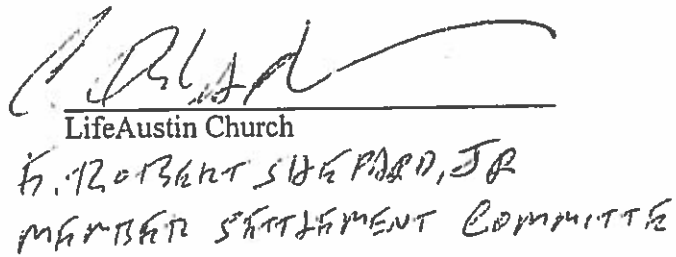 LifeAustin Church
E. ROBERT SHEPARD, JR
MEMBER SETTLEMENT COMMITTE